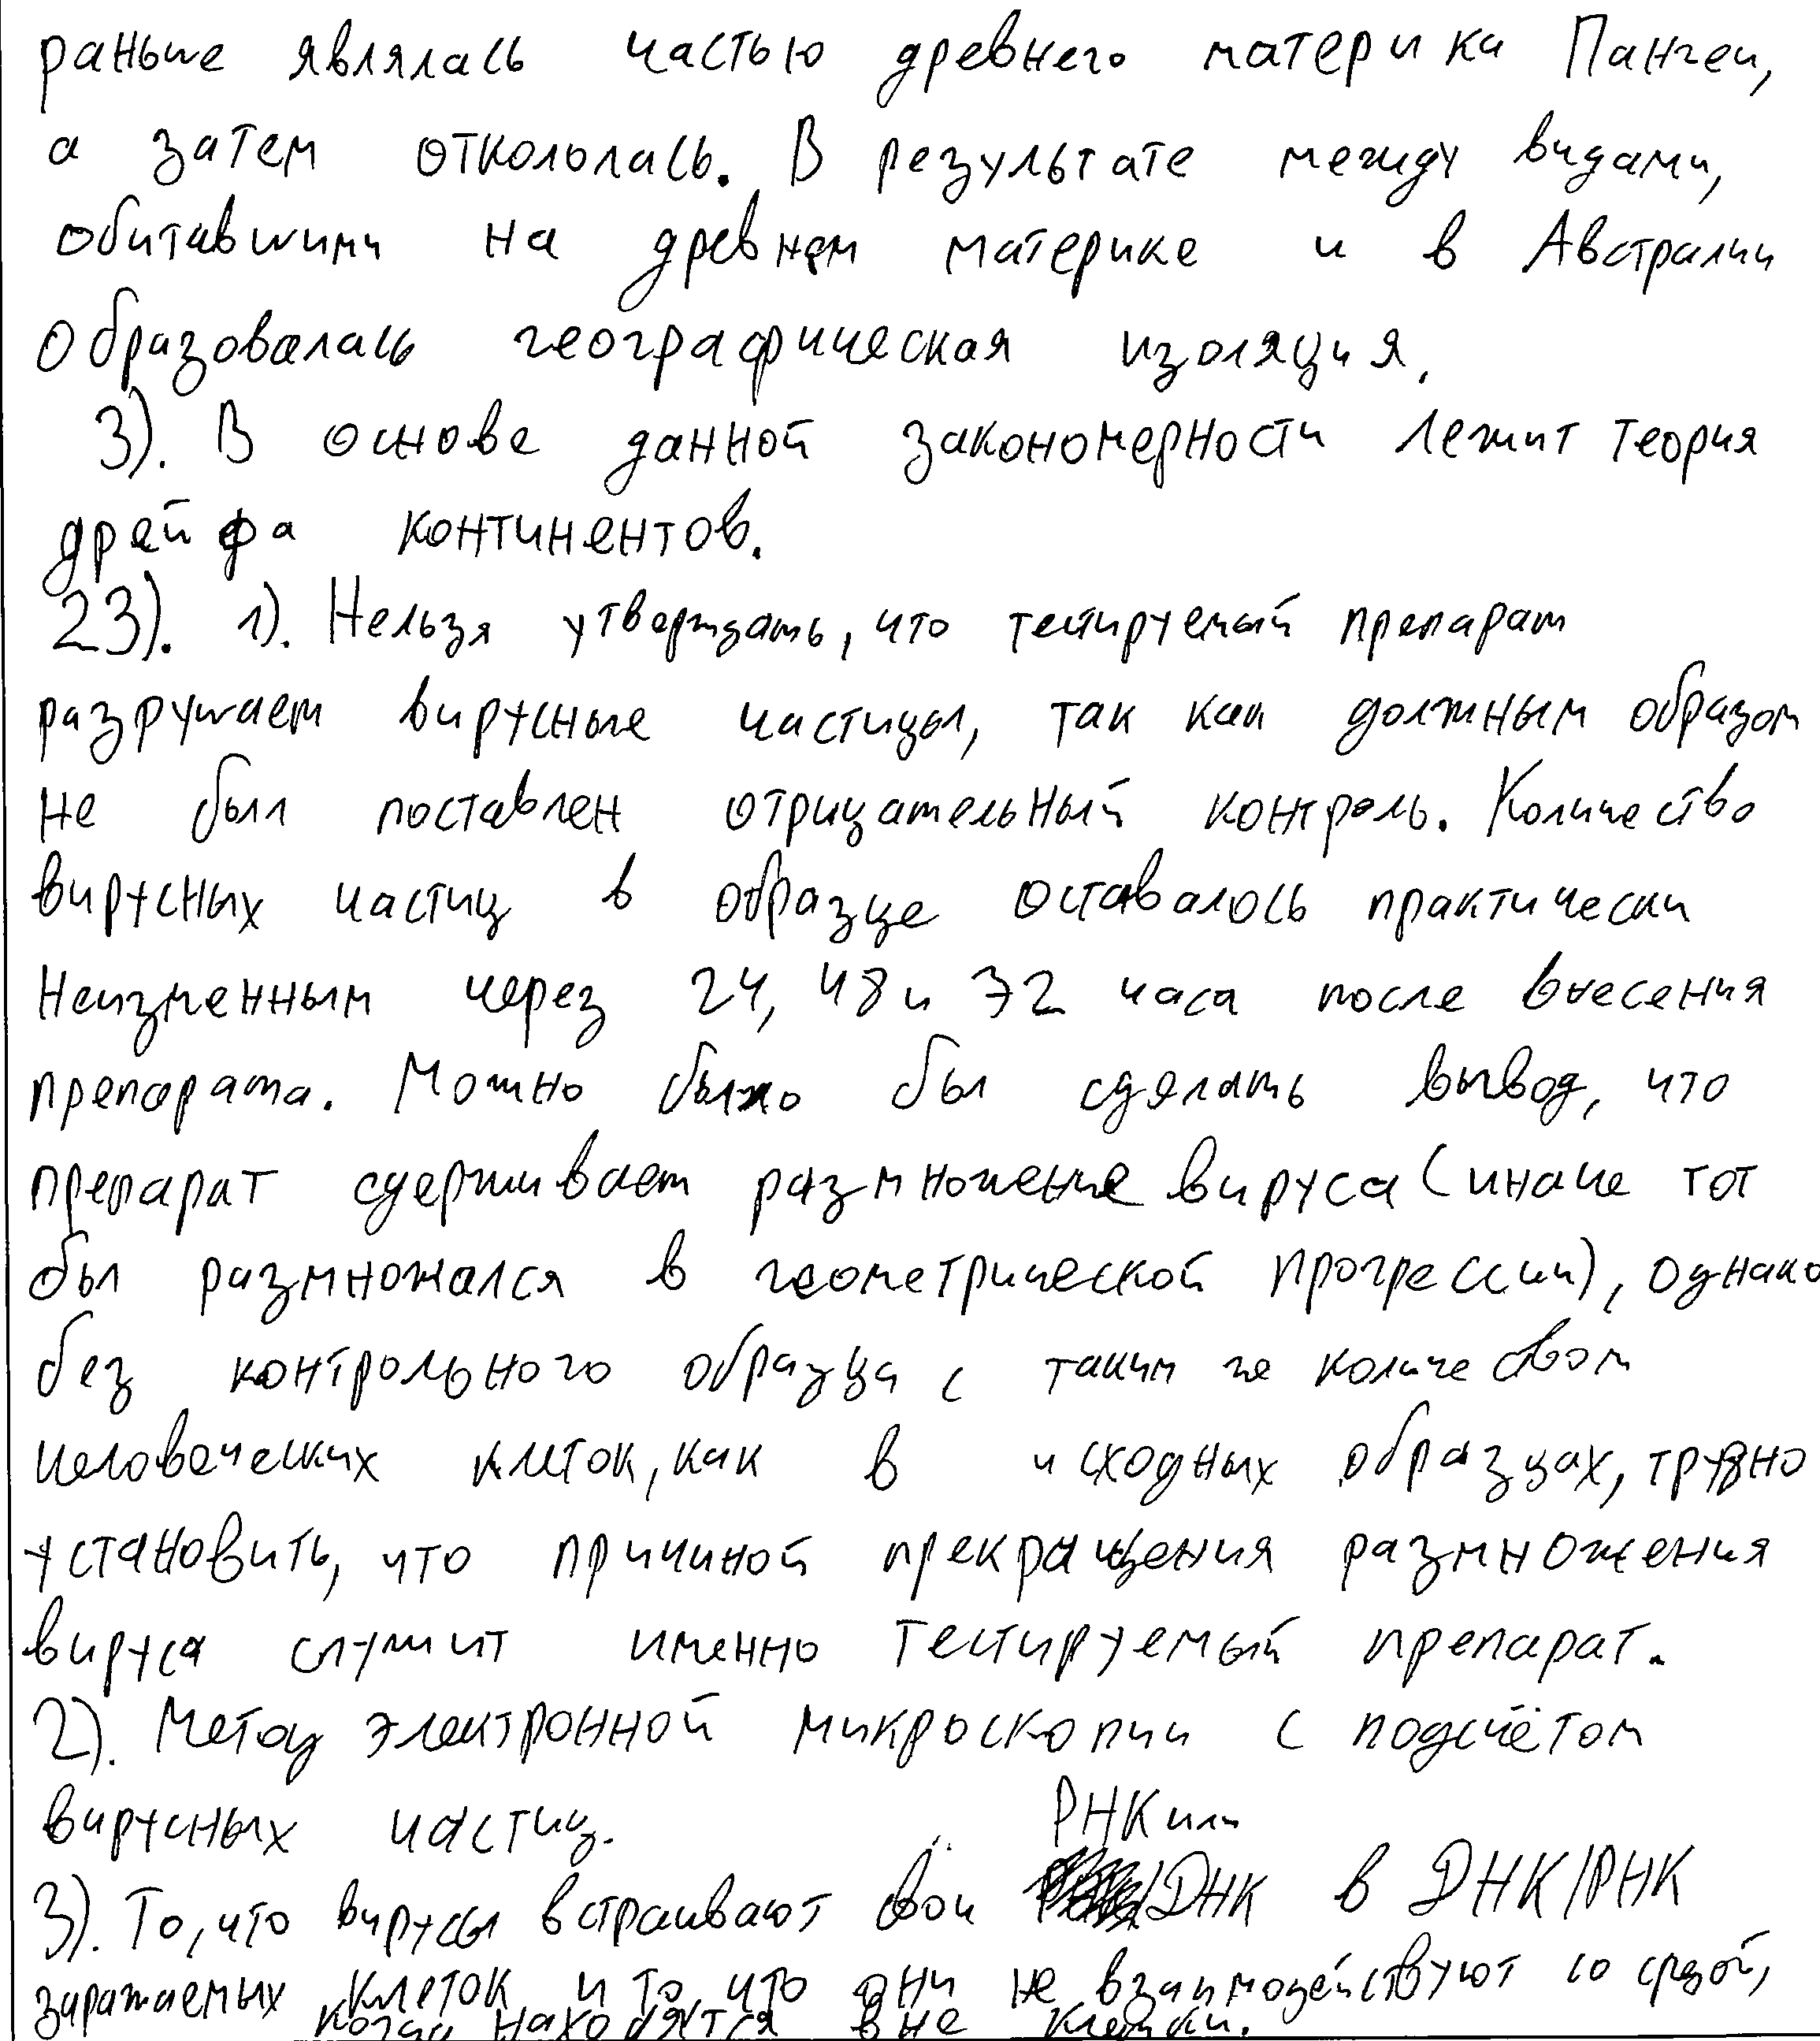 раньше являлась частью древнего материка Пангеи,
а затем откололась. В результате между видами,
обитавшими на древнем материке и в Австралии
образовалась географическая изоляция.
3). В основе данной закономерности лежит теория
дрейфа континентов.
23). 1). Нельзя утверждать, что тестируемый препарат
разрушает вирусные частицы, так как должным образом
не был поставлен отрицательный контроль. Количество
вирусных частиц в образце оставалось практически
неизменным через 24, 48 и 72 часа после внесения
препарата. Можно было бы сделать вывод, что
препарат сдерживает размножение вируса (иначе тот
бы размножался в геометрической прогрессии), однако
без контрольного образца с таким же количеством
человеческих клеток, как в исходных образцах, трудно
установить, что причиной прекращения размножения
вируса служит именно тестируемый препарат.
2). Метод электронной микроскопии с подсчётом
вирусных частиц.
3). То, что вирусы встраивают свои РНК или /ДНК в ДНК/РНК
заражаемых клеток и то, что они не взаимодействуют со средой,
когда находятся вне клетки.